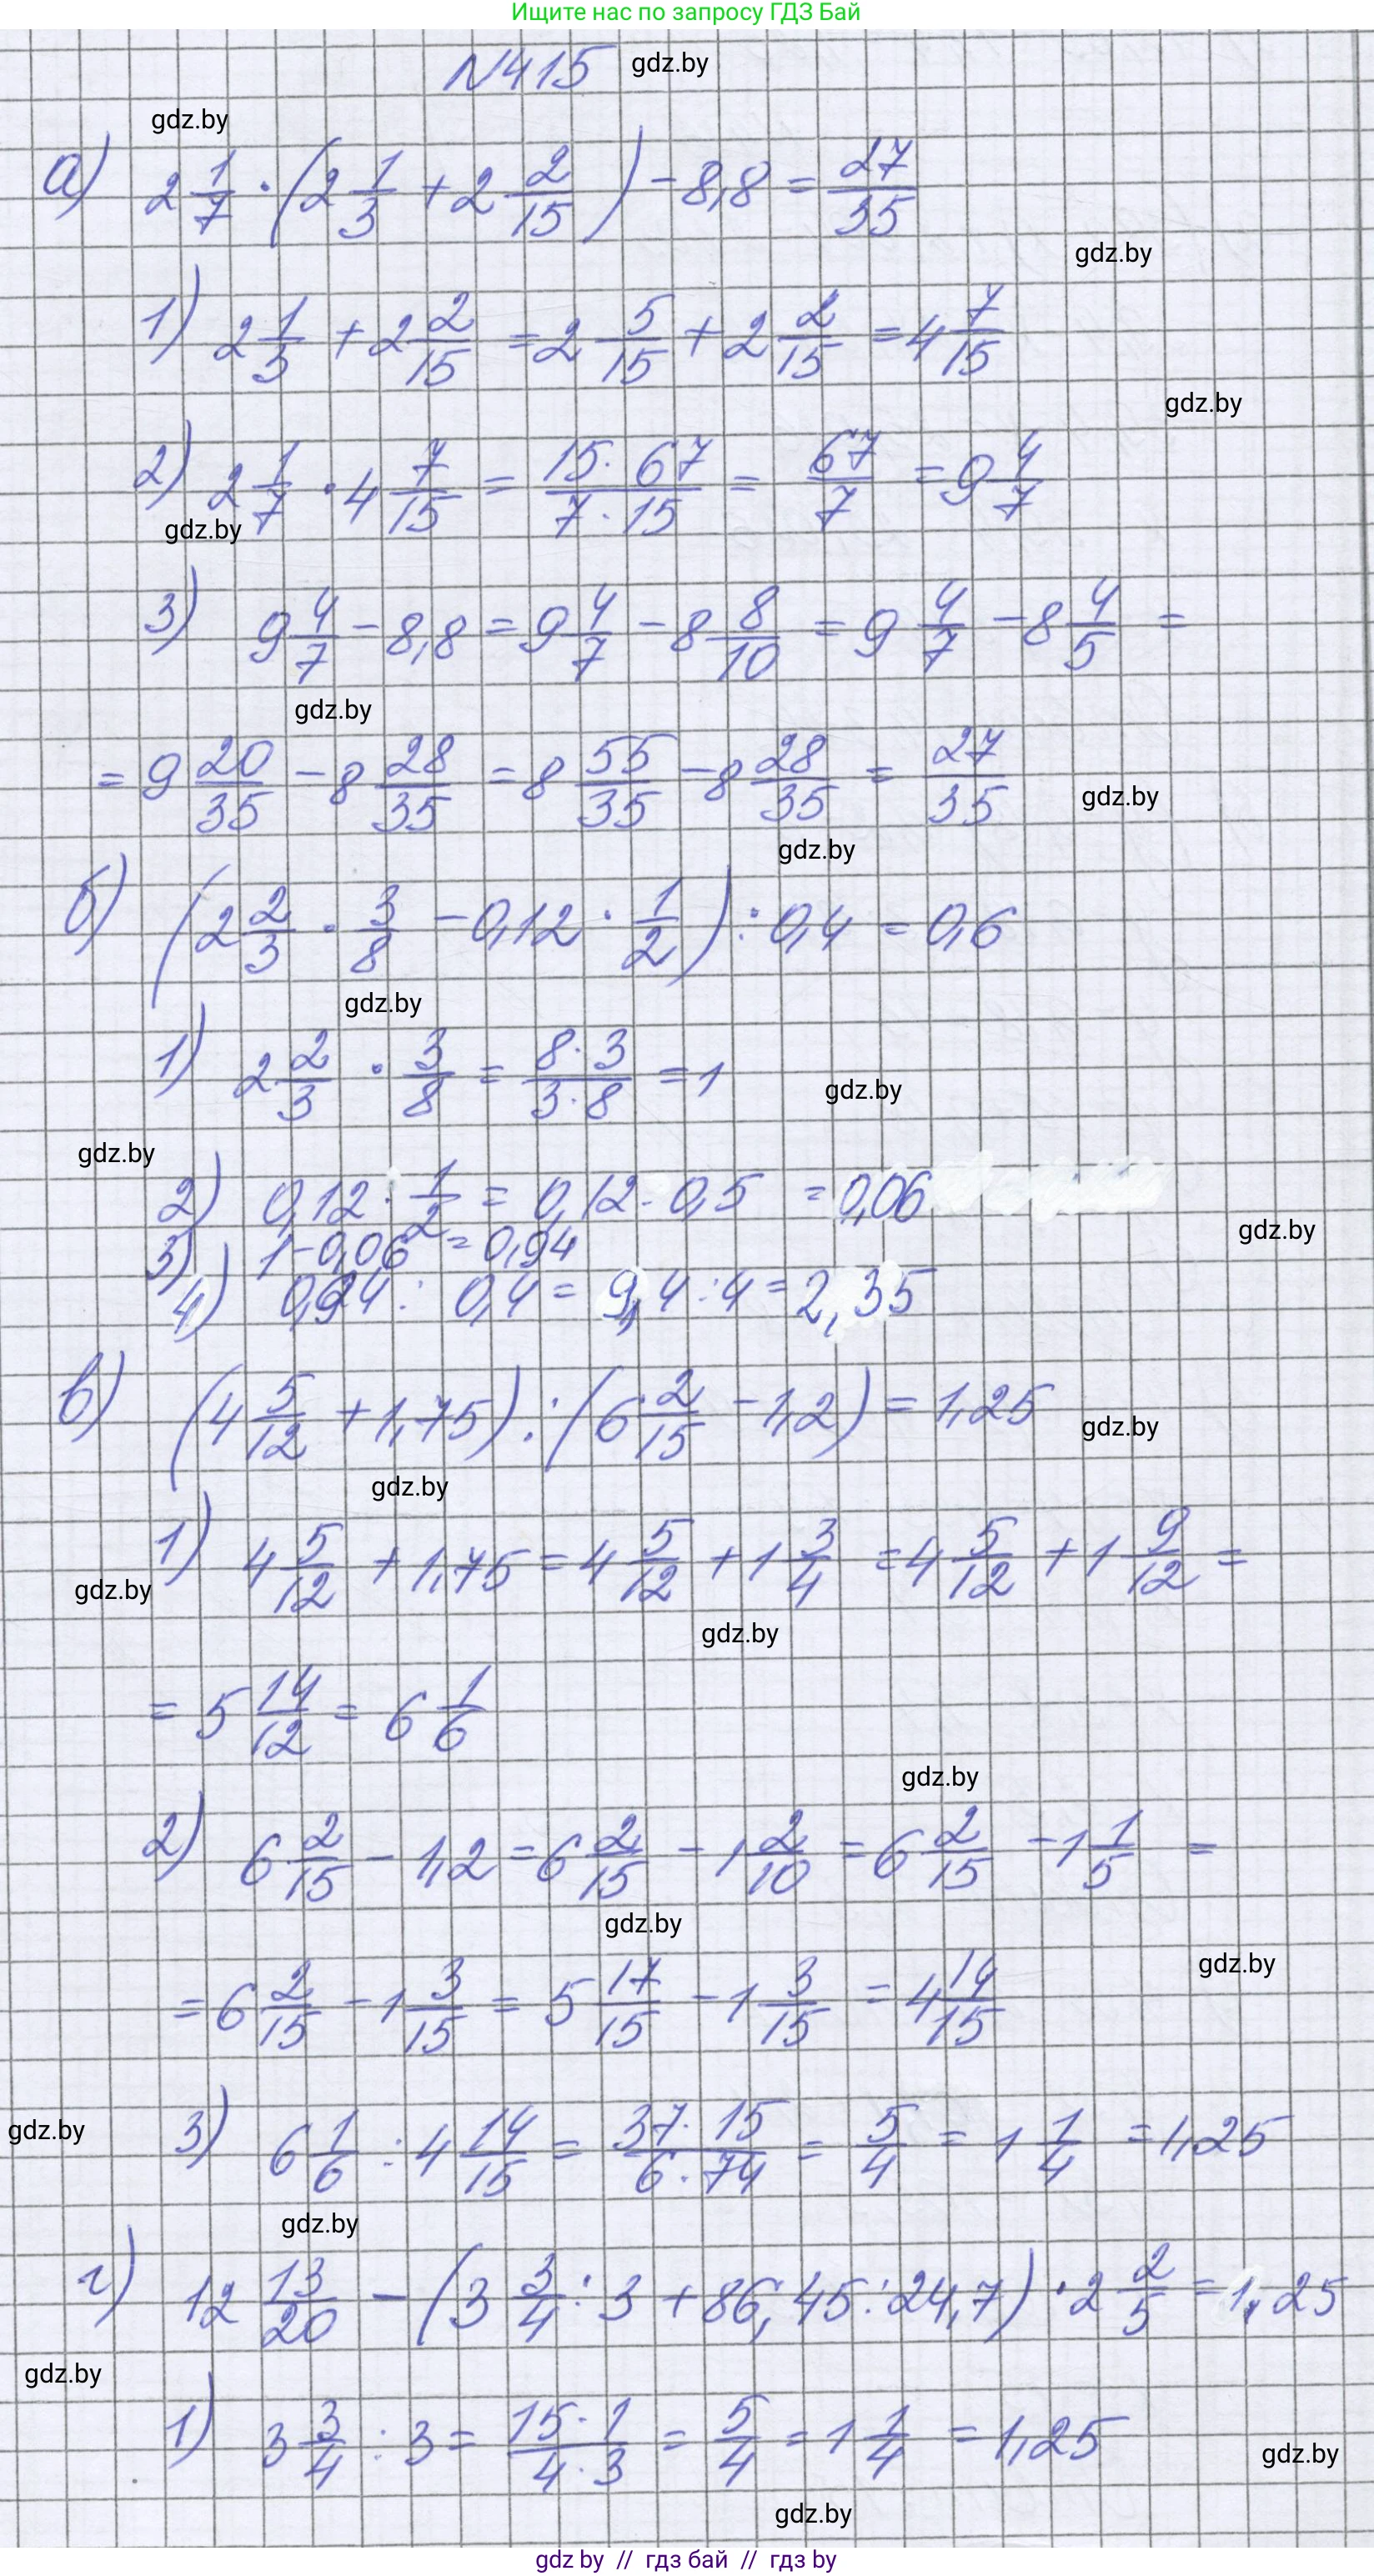 Ищите нас по запросу ГДЗ Бай
N415 gdz.by
gdz.by
а) 2 1/7 · (2 1/3 + 2 2/15) - 8,8 = 27/35
gdz.by
1) 2 1/3 + 2 2/15 = 2 5/15 + 2 2/15 = 4 7/15
gdz.by
2) 2 1/7 · 4 7/15 = 15 · 67/7 · 15 = 67/7 = 9 4/7
gdz.by
3) 9 4/7 - 8,8 = 9 4/7 - 8 8/10 = 9 4/7 - 8 4/5 =
gdz.by
= 9 20/35 - 8 28/35 = 8 55/35 - 8 28/35 = 27/35
gdz.by
gdz.by
б) (2 2/3 · 3/8 - 0,12 · 1/2) : 0,4 = 0,6
gdz.by
1) 2 2/3 · 3/8 = 8 · 3/3 · 8 = 1
gdz.by
gdz.by
2) 0,12 · 1/2 = 0,12 · 0,5 = 0,06
gdz.by
3) 1 - 0,06 = 0,94
4) 0,94 : 0,4 = 9,4 : 4 = 2,35
в) (4 5/12 + 1,75) : (6 2/15 - 1,2) = 1,25
gdz.by
gdz.by
1) 4 5/12 + 1,75 = 4 5/12 + 1 3/4 = 4 5/12 + 1 9/12 =
gdz.by
gdz.by
= 5 14/12 = 6 1/6
gdz.by
2) 6 2/15 - 1,2 = 6 2/15 - 1 2/10 = 6 2/15 - 1 1/5 =
gdz.by
gdz.by
= 6 2/15 - 1 3/15 = 5 17/15 - 1 3/15 = 4 14/15
gdz.by
3) 6 1/6 : 4 14/15 = 37 · 15/6 · 74 = 5/4 = 1 1/4 = 1,25
gdz.by
г) 12 13/20 - (3 3/4 : 3 + 86,45 : 24,7) · 2 2/5 = 1,25
gdz.by
1) 3 3/4 : 3 = 15 · 1/4 · 3 = 5/4 = 1 1/4 = 1,25
gdz.by
gdz.by
gdz by // гдз бай // гдз by